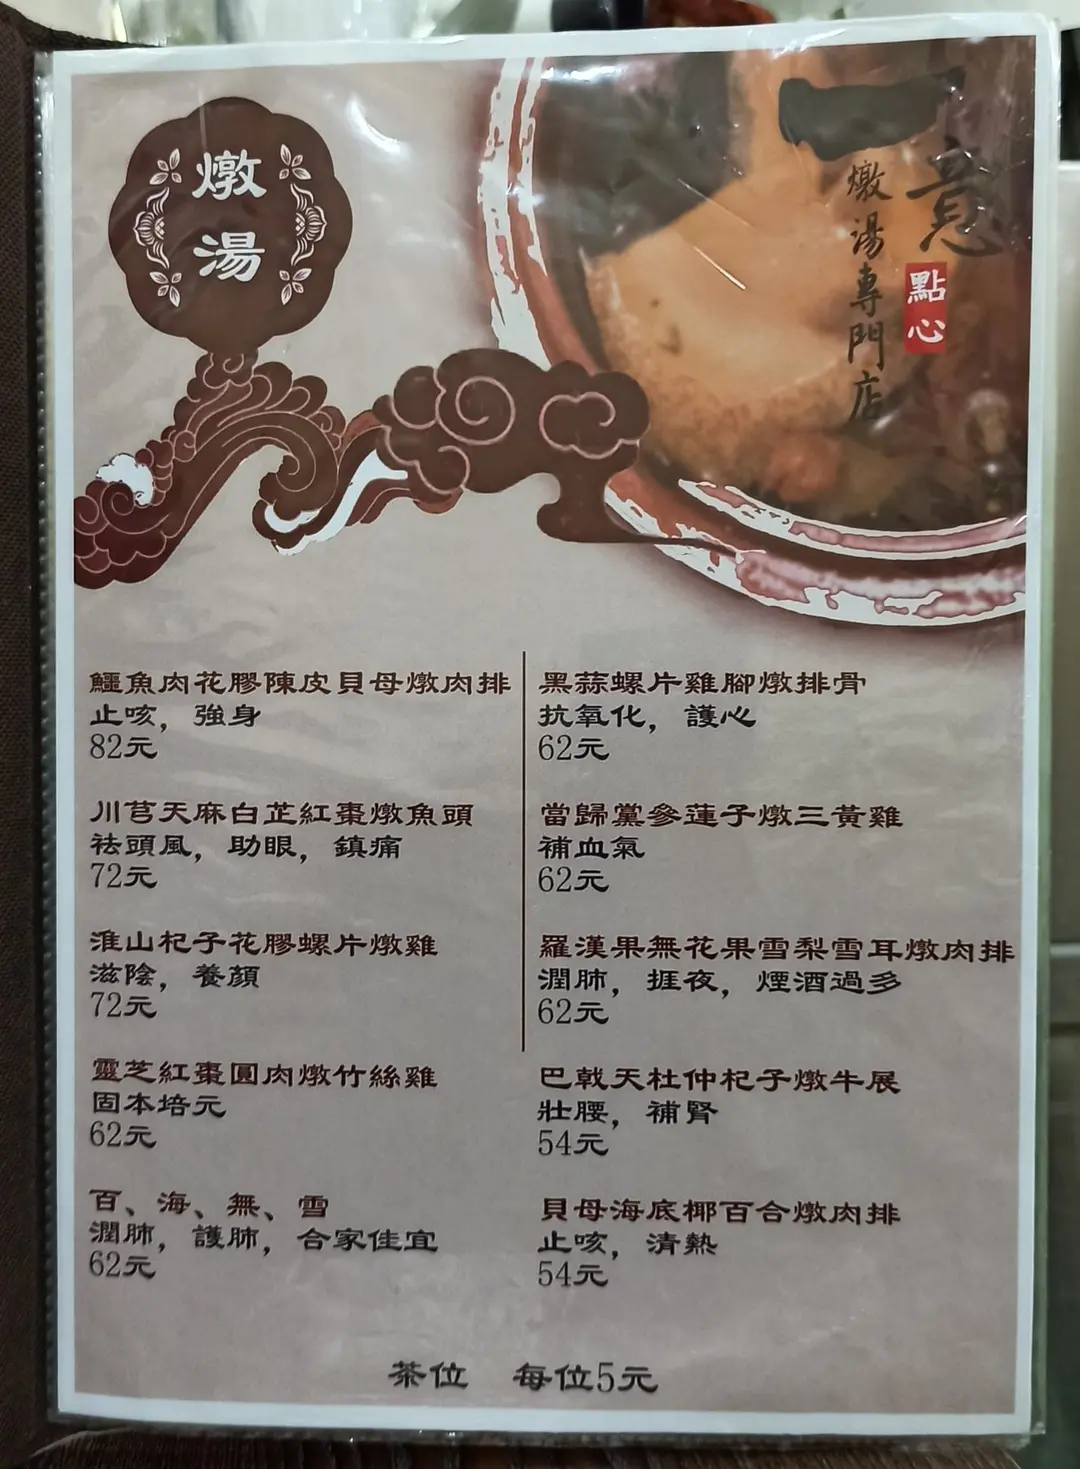 燉
湯
一意
點心
燉湯專門店
鱷魚肉花膠陳皮貝母燉肉排
止咳，強身
82元
川芎天麻白芷紅棗燉魚頭
祛頭風，助眼，鎮痛
72元
淮山杞子花膠螺片燉雞
滋陰，養顏
72元
靈芝紅棗圓肉燉竹絲雞
固本培元
62元
百、海、無、雪
潤肺，護肺，合家佳宜
62元
黑蒜螺片雞腳燉排骨
抗氧化，護心
62元
當歸黨參蓮子燉三黃雞
補血氣
62元
羅漢果無花果雪梨雪耳燉肉排
潤肺，捱夜，煙酒過多
62元
巴戟天杜仲杞子燉牛展
壯腰，補腎
54元
貝母海底椰百合燉肉排
止咳，清熱
54元
茶位　每位5元